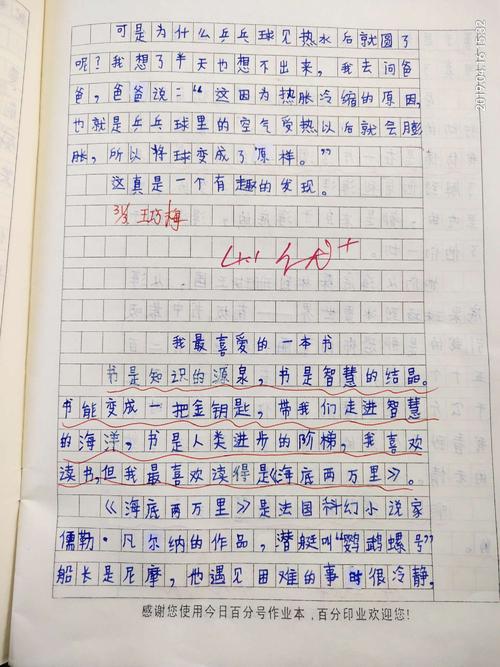 可是为什么乒乓球见热水后就圆了
呢？我想了半天也想不出来，我去问爸
爸，爸爸说：“这因为热胀冷缩的原因，
也就是乒乓球里的空气受热以后就会膨
胀，所以将球变成了原样。”
这真是一个有趣的发现。
我最喜爱的一本书
书是知识的源泉，书是智慧的结晶。
书能变成一把金钥匙，带我们走进智慧
的海洋，书是人类进步的阶梯，我喜欢
读书，但我最喜欢读得是《海底两万里》。
《海底两万里》是法国科幻小说家
儒勒·凡尔纳的作品，潜艇叫“鹦鹉螺号”
船长是尼摩，他遇见困难的事时很冷静。
感谢您使用今日百分号作业本，百分印业欢迎您！